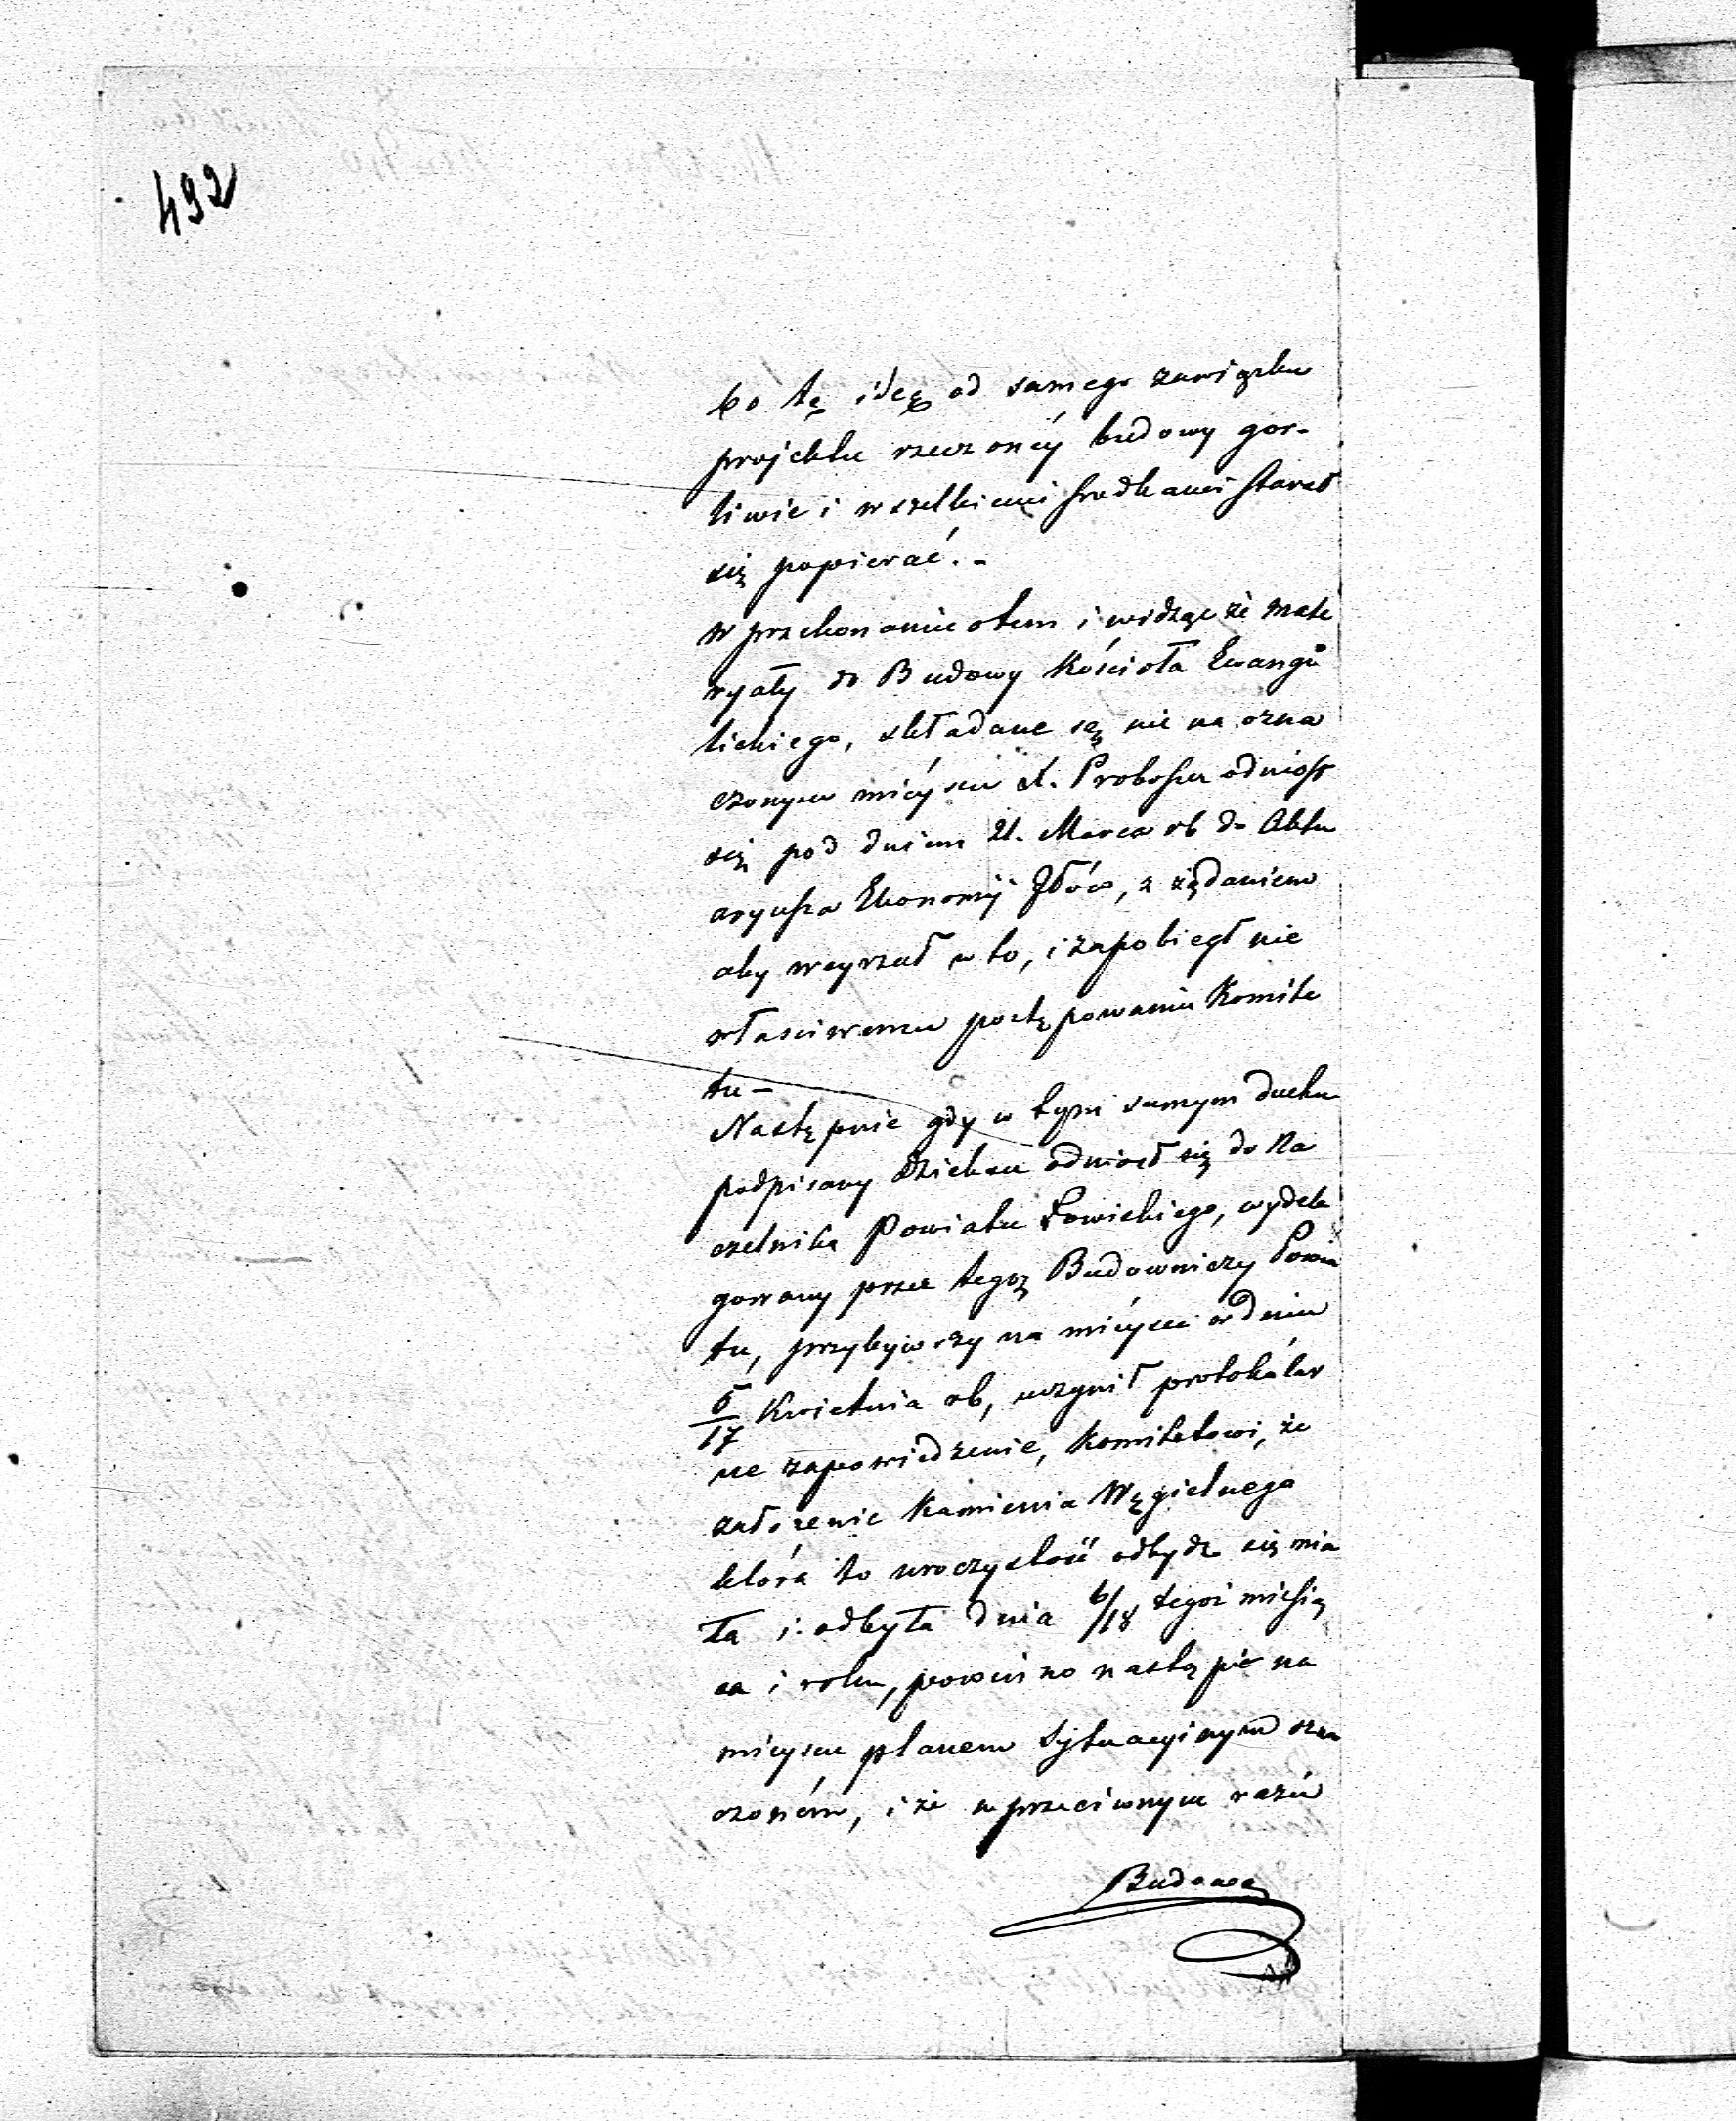 492
bo tę ideę od samego zawiązku
projektu rzeczonéy budowy gor-
liwie i wszelkiemi środkami starał
się popierać. -
w przekonaniu otem i widząc że mate
ryały do Budowy Kościoła Ewangie
lickiego, składane są nie na ozna
czonym miéyscu X. Proboszcz odniosł
się pod dniem 21. Marca rb do Aktu
aryusza Ekonomij Jłów, z żądaniem
aby weyrzał w to, i zapobiegł nie
własciwemu postępowaniu Komite
tu -
Następnie gdy w tym samym duchu
podpisany dziekan odniosł się do Na
czelnika Powiatu Łowickiego, wydele
gowany przez tegoż Budowniczy Powia
tu, przybywszy na miéyscu w dniu
5/17 Kwietnia rb, uczynił protokólar
ne zapowiedzenie, Komitetowi, że
założenie Kamienia Węgielnego
która to uroczystość odbydź się mia
ła i odbyła dnia 6/18 tegoż miesią
ca i roku, powinno nastąpić na
mieyscu planem Sytuacyinym ozna
czoném, i że w przeciwnym razie
Budowa